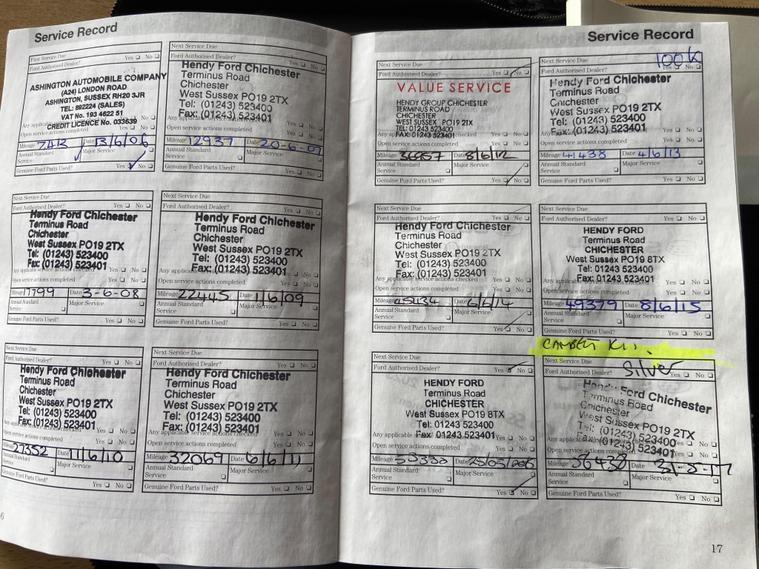 Service Record
First Service Due Yes No
Ford Authorised Dealer?
ASHINGTON AUTOMOBILE COMPANY
(A24) LONDON ROAD
ASHINGTON, SUSSEX RH20 3JR
TEL: 892224 (SALES)
VAT No. 193 4622 51
CREDIT LICENCE No. 033639
Open service actions completed Yes No
Mileage Date 13/6/06
Annual Standard Service Major Service
Genuine Ford Parts Used? Yes No
Next Service Due
Ford Authorised Dealer?
Hendy Ford Chichester
Terminus Road
Chichester
West Sussex PO19 2TX
Tel: (01243) 523400
Fax: (01243) 523401
Open service actions completed Yes No
Mileage 12937 Date 20-6-07
Annual Standard Service Major Service
Genuine Ford Parts Used? Yes No
Next Service Due
Ford Authorised Dealer?
Hendy Ford Chichester
Terminus Road
Chichester
West Sussex PO19 2TX
Tel: (01243) 523400
Fax: (01243) 523401
Open service actions completed Yes No
17799 Date 3-6-08
Annual Standard Service Major Service
Genuine Ford Parts Used? Yes No
Next Service Due
Ford Authorised Dealer?
Hendy Ford Chichester
Terminus Road
Chichester
West Sussex PO19 2TX
Tel: (01243) 523400
Fax: (01243) 523401
Open service actions completed Yes No
Mileage 22445 Date 1/6/09
Annual Standard Service Major Service
Genuine Ford Parts Used? Yes No
Next Service Due
Ford Authorised Dealer?
Hendy Ford Chichester
Terminus Road
Chichester
West Sussex PO19 2TX
Tel: (01243) 523400
Fax: (01243) 523401
Open service actions completed Yes No
27352 Date 1/6/10
Annual Standard Service Major Service
Genuine Ford Parts Used? Yes No
Next Service Due
Ford Authorised Dealer?
Hendy Ford Chichester
Terminus Road
Chichester
West Sussex PO19 2TX
Tel: (01243) 523400
Fax: (01243) 523401
Open service actions completed Yes No
Mileage 32069 Date 6/6/11
Annual Standard Service Major Service
Genuine Ford Parts Used? Yes No
Service Record
Next Service Due
Ford Authorised Dealer? Yes No
VALUE SERVICE
HENDY GROUP CHICHESTER
TERMINUS ROAD
CHICHESTER
WEST SUSSEX PO19 2TX
TEL: 01243 523400
FAX: 01243 523401
Open service actions completed Yes No
Mileage Date 8/6/12
Annual Standard Service Major Service
Genuine Ford Parts Used? Yes No
Next Service Due 100k
Ford Authorised Dealer? Yes No
Hendy Ford Chichester
Terminus Road
Chichester
West Sussex PO19 2TX
Tel: (01243) 523400
Fax: (01243) 523401
Open service actions completed Yes No
Mileage 41438 Date 4/6/13
Annual Standard Service Major Service
Genuine Ford Parts Used? Yes No
Next Service Due
Ford Authorised Dealer?
Hendy Ford Chichester
Terminus Road
Chichester
West Sussex PO19 2TX
Tel: (01243) 523400
Fax: (01243) 523401
Open service actions completed Yes No
Mileage 45434 Date 6/6/14
Annual Standard Service Major Service
Genuine Ford Parts Used? Yes No
Next Service Due
Ford Authorised Dealer? Yes No
HENDY FORD
TERMINUS ROAD
CHICHESTER
WEST SUSSEX PO19 8TX
Tel: 01243 523400
Fax: 01243 523401
Open service actions completed Yes No
Mileage 49379 Date 8/6/15
Annual Standard Service Major Service
Genuine Ford Parts Used? Yes No
CAMBELT KIT.
Next Service Due
Ford Authorised Dealer? Yes No
HENDY FORD
TERMINUS ROAD
CHICHESTER
WEST SUSSEX PO19 8TX
Tel: 01243 523400
Fax: 01243 523401
Open service actions completed Yes No
Mileage Date
Annual Standard Service Major Service
Genuine Ford Parts Used? Yes No
Next Service Due Silver
Ford Authorised Dealer? Yes No
Hendy Ford Chichester
Terminus Road
Chichester
West Sussex PO19 2TX
Tel: (01243) 523400
Fax: (01243) 523401
Open service actions completed Yes No
Mileage 56438 Date
Annual Standard Service Major Service
Genuine Ford Parts Used? Yes No
17